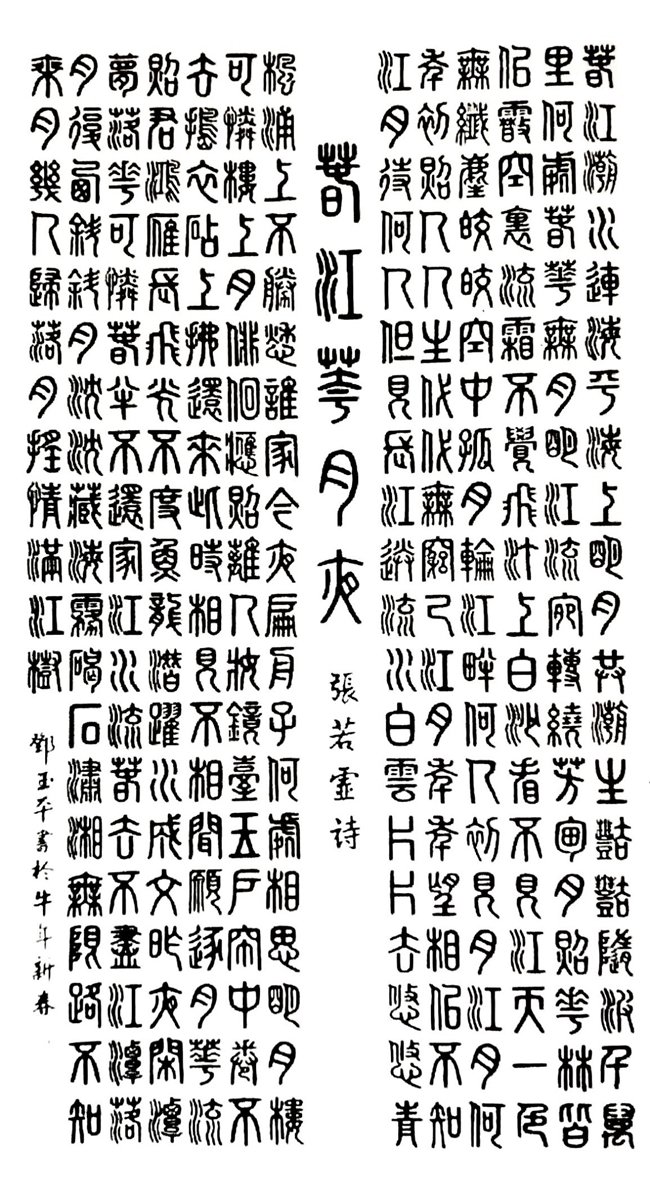 春江潮水連海平海上明月共潮生灩灩隨波千萬
里何處春花無月明江流宛轉繞芳甸月照花林皆
似霰空裏流霜不覺飛汀上白沙看不見江天一色
無纖塵皎皎空中孤月輪江畔何人初見月江月何
年初照人人生代代無窮已江月年年望相似不知
江月待何人但見長江送流水白雲片片去悠悠青
春江花月夜
張若虛詩
楓浦上不勝愁誰家今夜扁舟子何處相思明月樓
可憐樓上月徘徊應照離人妝鏡臺玉戶簾中卷不
去搗衣砧上拂還來此時相見不相聞願逐月花流
照君鴻雁長飛光不度魚龍潛躍水成文昨夜閑潭
夢落花可憐春半不還家江水流春去不盡江潭落
月復西斜斜月沈沈藏海霧碣石瀟湘無限路不知
乘月幾人歸落月搖情滿江樹
鄧玉平書於牛年新春